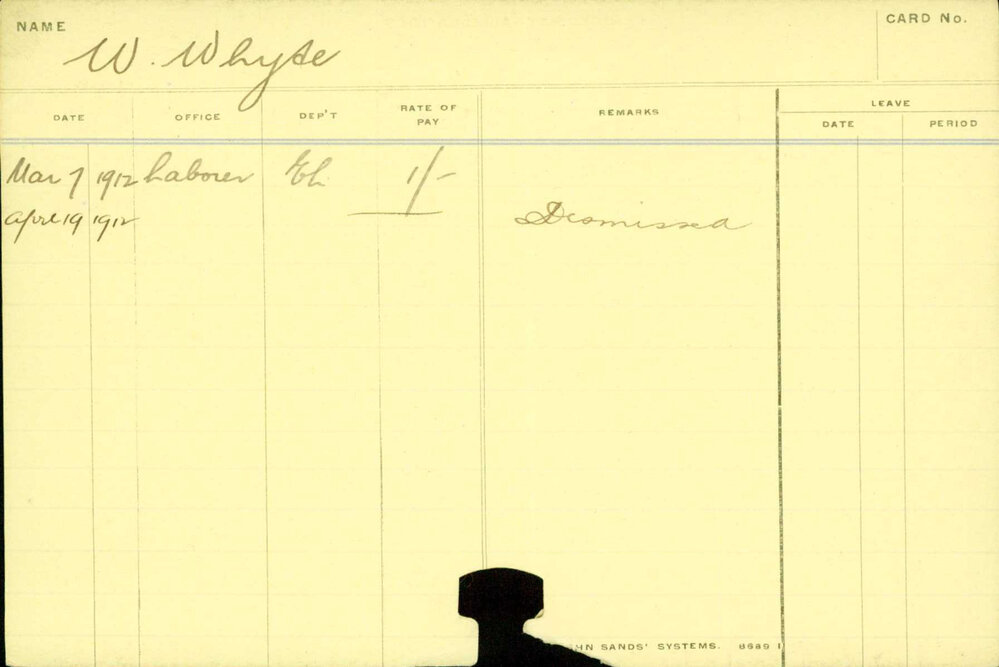 NAME W. Whyte CARD No.
DATE OFFICE DEP'T RATE OF PAY REMARKS LEAVE DATE PERIOD
Mar 7 1912 Laborer 1/-
April 19 1912 Dismissed
SANDS' SYSTEMS. 8689